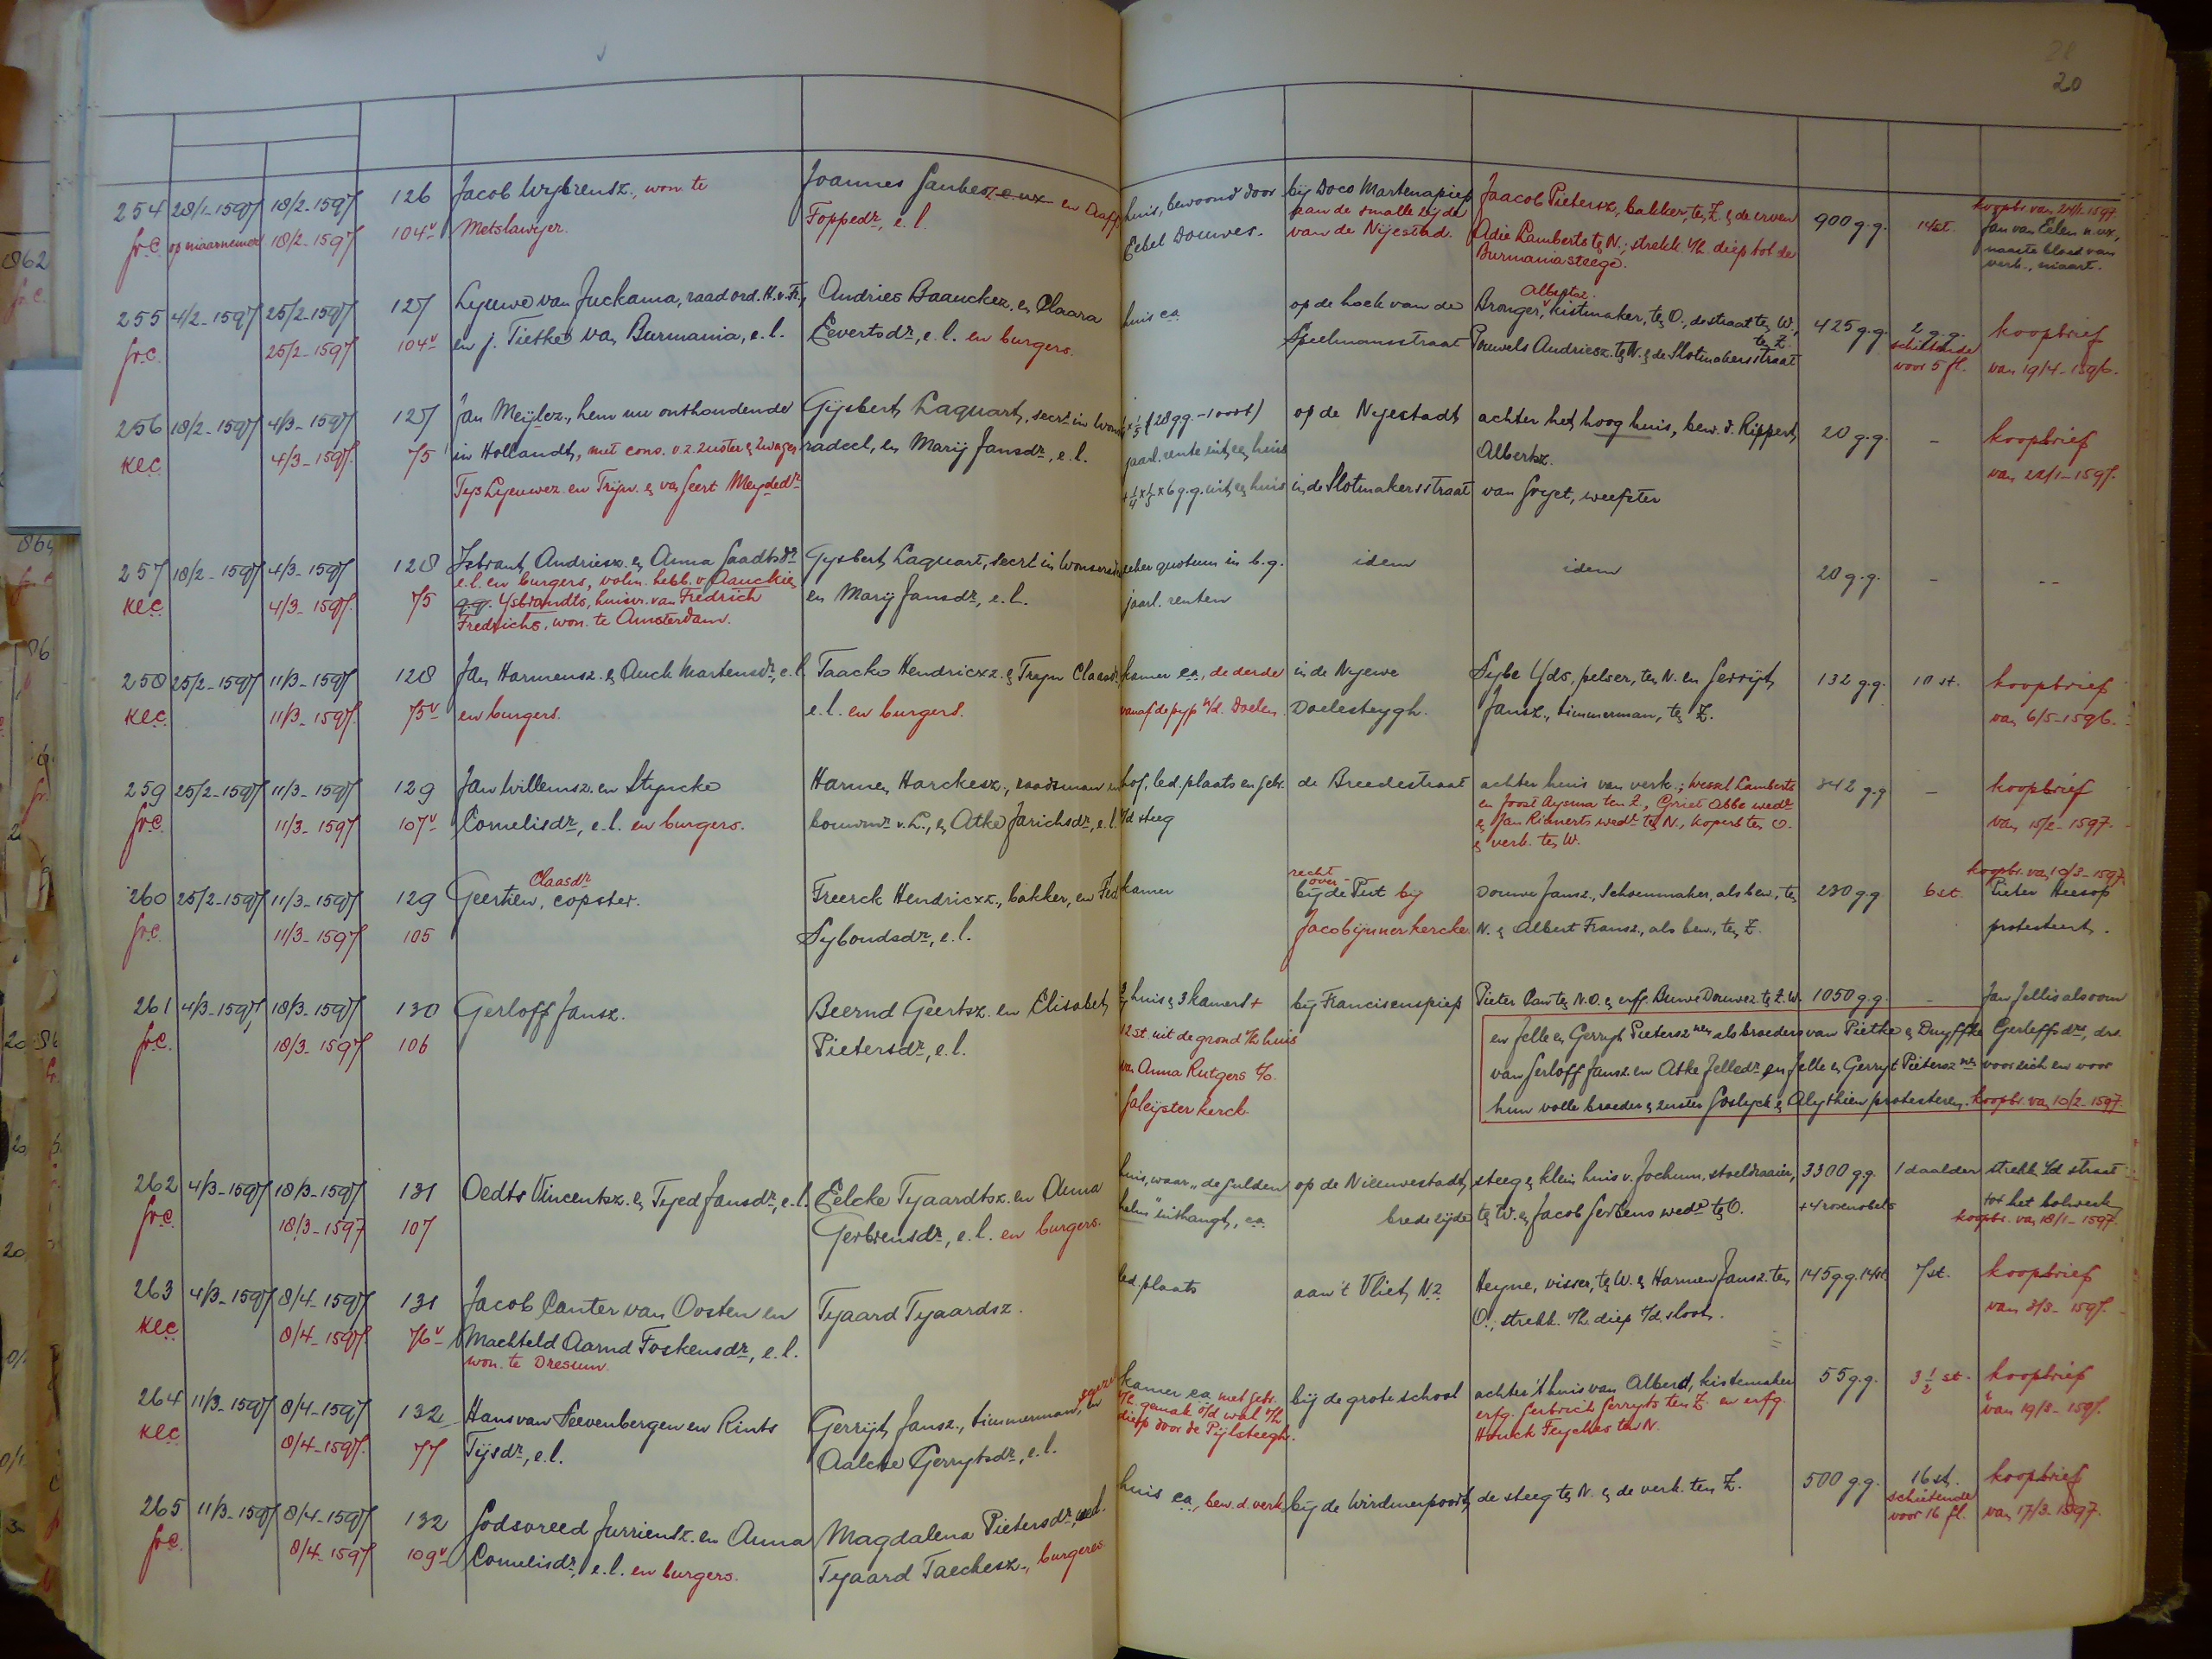 28
20
254 28/1-1597 18/2-1597 126 Jacob Wybrensz., won te Joannes Saubesz. e ux en
gr.C. op niaarnemen 18/2-1597 104v Metslawyer. Foppedr, e.l.
huis, bewoond door bij Doco Martenapiep Jaacob Pietersz, bakker, ten Z. en de erven 900 g.g. 14 st. koopbr. van 24/1-1597.
Eebel Douwes. aan de smalle zijde Adie Lamberts ten N.; strekk. v/h. diep tot de Jan van Eelen n. ux,
van de Nijestad. Burmaniasteege. naaste bloed van
verk., niaart.
255 4/2-1597 25/2-1597 127 Lyuwe van Juckama, raad ord. H.v.Fr., Andries Baanckez. en Claara
gr.C. 25/2-1597 104v en j. Tietke van Burmania, e.l. Eevertsdr, e.l. en burgers.
huis ca op de hoek van de Bronger Albertsz. kistmaker, ten O., de straat ten W., 425 g.g. 2 g.g. koopbrief
Speelmansstraat Pouwels Andriesz. ten N. en de Slotmakersstraat ten Z. schietende voor 5 fl. van 19/4-1596.
256 18/2-1597 4/3-1597 127 Jan Meylez., hem nu onthoudende Gysbert Laquart, secr. in Wonse
KLC 4/3-1597. 75 in Hollandt, met cons. v.z. zuster en zwager radeel, en Marij Jansdr, e.l.
Tys Lyeuwez. en Tryn. en van Geert Meyledr
1/5 (28 g.g. - 1 oort) op de Nyestadt achter het hoog huis, bew. d. Rippert 20 g.g. - koopbrief
jaarl. rente uit een huis Albertsz. van 22/1-1597.
+ 1/4 x 1/5 x 6 g.g. uit een huis in de Slotmakersstraat van Gryet, weefster
257 18/2-1597 4/3-1597 128 Isbrant Andriesz. en Anna Saadtsdr Gysbert Laquart, secr. in Wonseradeel
KLC. 4/3-1597. 75 e.l. en burgers, volm. hebb. v. Aanckien en Marij Jansdr, e.l.
g.g. Ysbrandts, huisvr. van Fredrich
Fredrichs, won. te Amsterdam.
zeker quotum in b.g. idem idem 20 g.g. - --
jaarl. renten
258 25/2-1597 11/3-1597 128 Jan Harmensz. en Auck Martensdr, e.l. Taacke Hendricxz. en Tryn Claasdr
KLC. 11/3-1597. 75v en burgers. e.l. en burgers.
kamer ca, de derde in de Nyewe Sybe Yds, pelser, ten N. en Gerryt 132 g.g. 10 st. koopbrief
vanaf de pyp n/d. Doelen. Doelesteygh. Jansz., timmerman, ten Z. van 6/5-1596.
259 25/2-1597 11/3-1597 129 Jan Willemsz. en Styncke Harmen Harckesz., raadsman en
gr.C. 11/3-1597 107v Cornelisdr, e.l. en burgers. bouwmr v. L., en Atke Jarichsdr, e.l.
hof, led. plaats en gebr. de Breedestraat achter huis van verk.; Wessel Lamberts 342 g.g - koopbrief
v/d steeg en Joost Aysma ten Z., Griet Abbe wedr van 15/2-1597.
en Jan Rienerts wedr ten N., koper ten O.
en verk. ten W.
260 25/2-1597 11/3-1597 129 Geertien Claasdr, copster. Freerck Hendricxz., bakker, en Fed
gr.C. 11/3-1597 105 Syboudsdr, e.l.
kamer recht over bij de Put bij Douwe Jansz., Schoenmaker, als bew., ten 230 g.g 6 st. koopbr. van 10/3-1597.
Jacobijnnerkercke. N. en Albert Fransz., als bew., ten Z. Pieter Heesop
protesteert.
261 4/3-1597 18/3-1597 130 Gerloff Jansz. Beernd Geertsz. en Elisabet
gr.C. 18/3-1597 106 Pietersdr, e.l.
huis en 3 kamers + bij Franciscuspiep Pieter Can ten N.O. en erfg. Buwe Douwez. ten Z.W. 1050 g.g. - Jan Jellis als oom
12 st. uit de grond v/h huis en Jelle en Gerryt Pietersznen als broeders van Pietke en Duyffke Gerleffsdrs, drs.
van Anna Rutgers t/o. van Gerloff Jansz. en Atke Jelledr en Jelle en Gerryt Pietersznen voor zich en voor
Galeyster kerck. hun volle broeder en zuster Goslyck en Alythien protesteren. koopbr. van 10/2-1597.
262 4/3-1597 18/3-1597 131 Oedts Vincentsz. en Tyed Jansdr, e.l. Eelcke Tyaardtsz. en Anna
gr.C. 18/3-1597 107 Gerbrensdr, e.l. en burgers.
huis, waar „de gulden op de Nieuwestadt, steeg en klein huis v. Jochum, stoeldraaier, 3300 g.g. 1 daalder strekk. v/d straat
helm" uithangt, ca. brede zijde ten W. en Jacob Gerbens wedr ten O. + 4 rosenobels tot het bolwerk
koopbr. van 18/1-1597.
263 4/3-1597 8/4-1597 131 Jacob Canter van Oosten en Tyaard Tyaardsz.
KLC 8/4-1597. 76v Machteld Aarnd Foskensdr, e.l.
won. te Dresum.
led. plaats aan 't Vliet, N.Z. Heyne, visser, ten W. en Harmen Jansz. ten 145 g.g. 14 st. 7 st. koopbrief
O.; strekk. v/h. diep t/d. sloot. van 3/3-1597.
264 11/3-1597 8/4-1597 132 Hans van Seevenbergen en Rints Gerryt Jansz., timmerman, en
KLC 8/4-1597. 77 Tijsdr, e.l. Aalcke Gerrytsdr, e.l.
kamer ca met gebr. bij de grote school achter 't huis van Alberd, kistemaker 55 g.g. 3 1/2 st. koopbrief
v/h. gemak o/d wal v/h erfg. Gerbrich Gerryts ten Z. en erfg. van 19/3-1597.
diep door de Pijlsteegh. Houck Feyckes ten N.
265 11/3-1597 8/4-1597 132 Godsvreed Jurrientz. en Anna Magdalena Pietersdr, wed.
gr.C. 8/4-1597 109v Cornelisdr, e.l. en burgers. Tyaard Taeckesz., burgeres.
huis ca, bew. d. verk. bij de Wirdumerpoort, de steeg ten N. en de verk. ten Z. 500 g.g. 16 st. koopbrief
schietende voor 16 fl. van 17/3-1597.